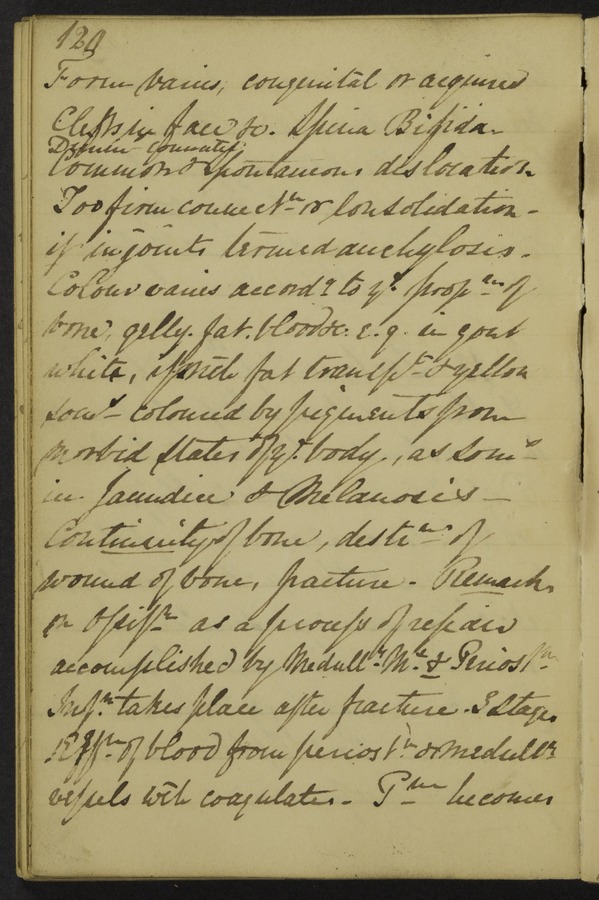 120
Form varies, congenital or acquired
Clefts in face &c. Spina Bifida.
Common & Spontaneous dislocation.
Too firm connectn or Consolidation -
if in joints termed anchylosis.
Colour varies accordg to ye propns of
bone, gelly. fat. blood &c. e.g. in gout
white, if much fat transpt & yellow
somt - coloured by pigments from
morbid states of ye body, as somt
in Jaundice & Melanosis -
Continuity of bone, destrn of
wound of bone, fracture. Remarks
on Ossifn as a process of repair
accomplished by Medully Me & Periostm
Infn takes place after fracture. 3 Stages
1 Effn of blood from periostm & medully
vessels wch coagulates - Pm becomes